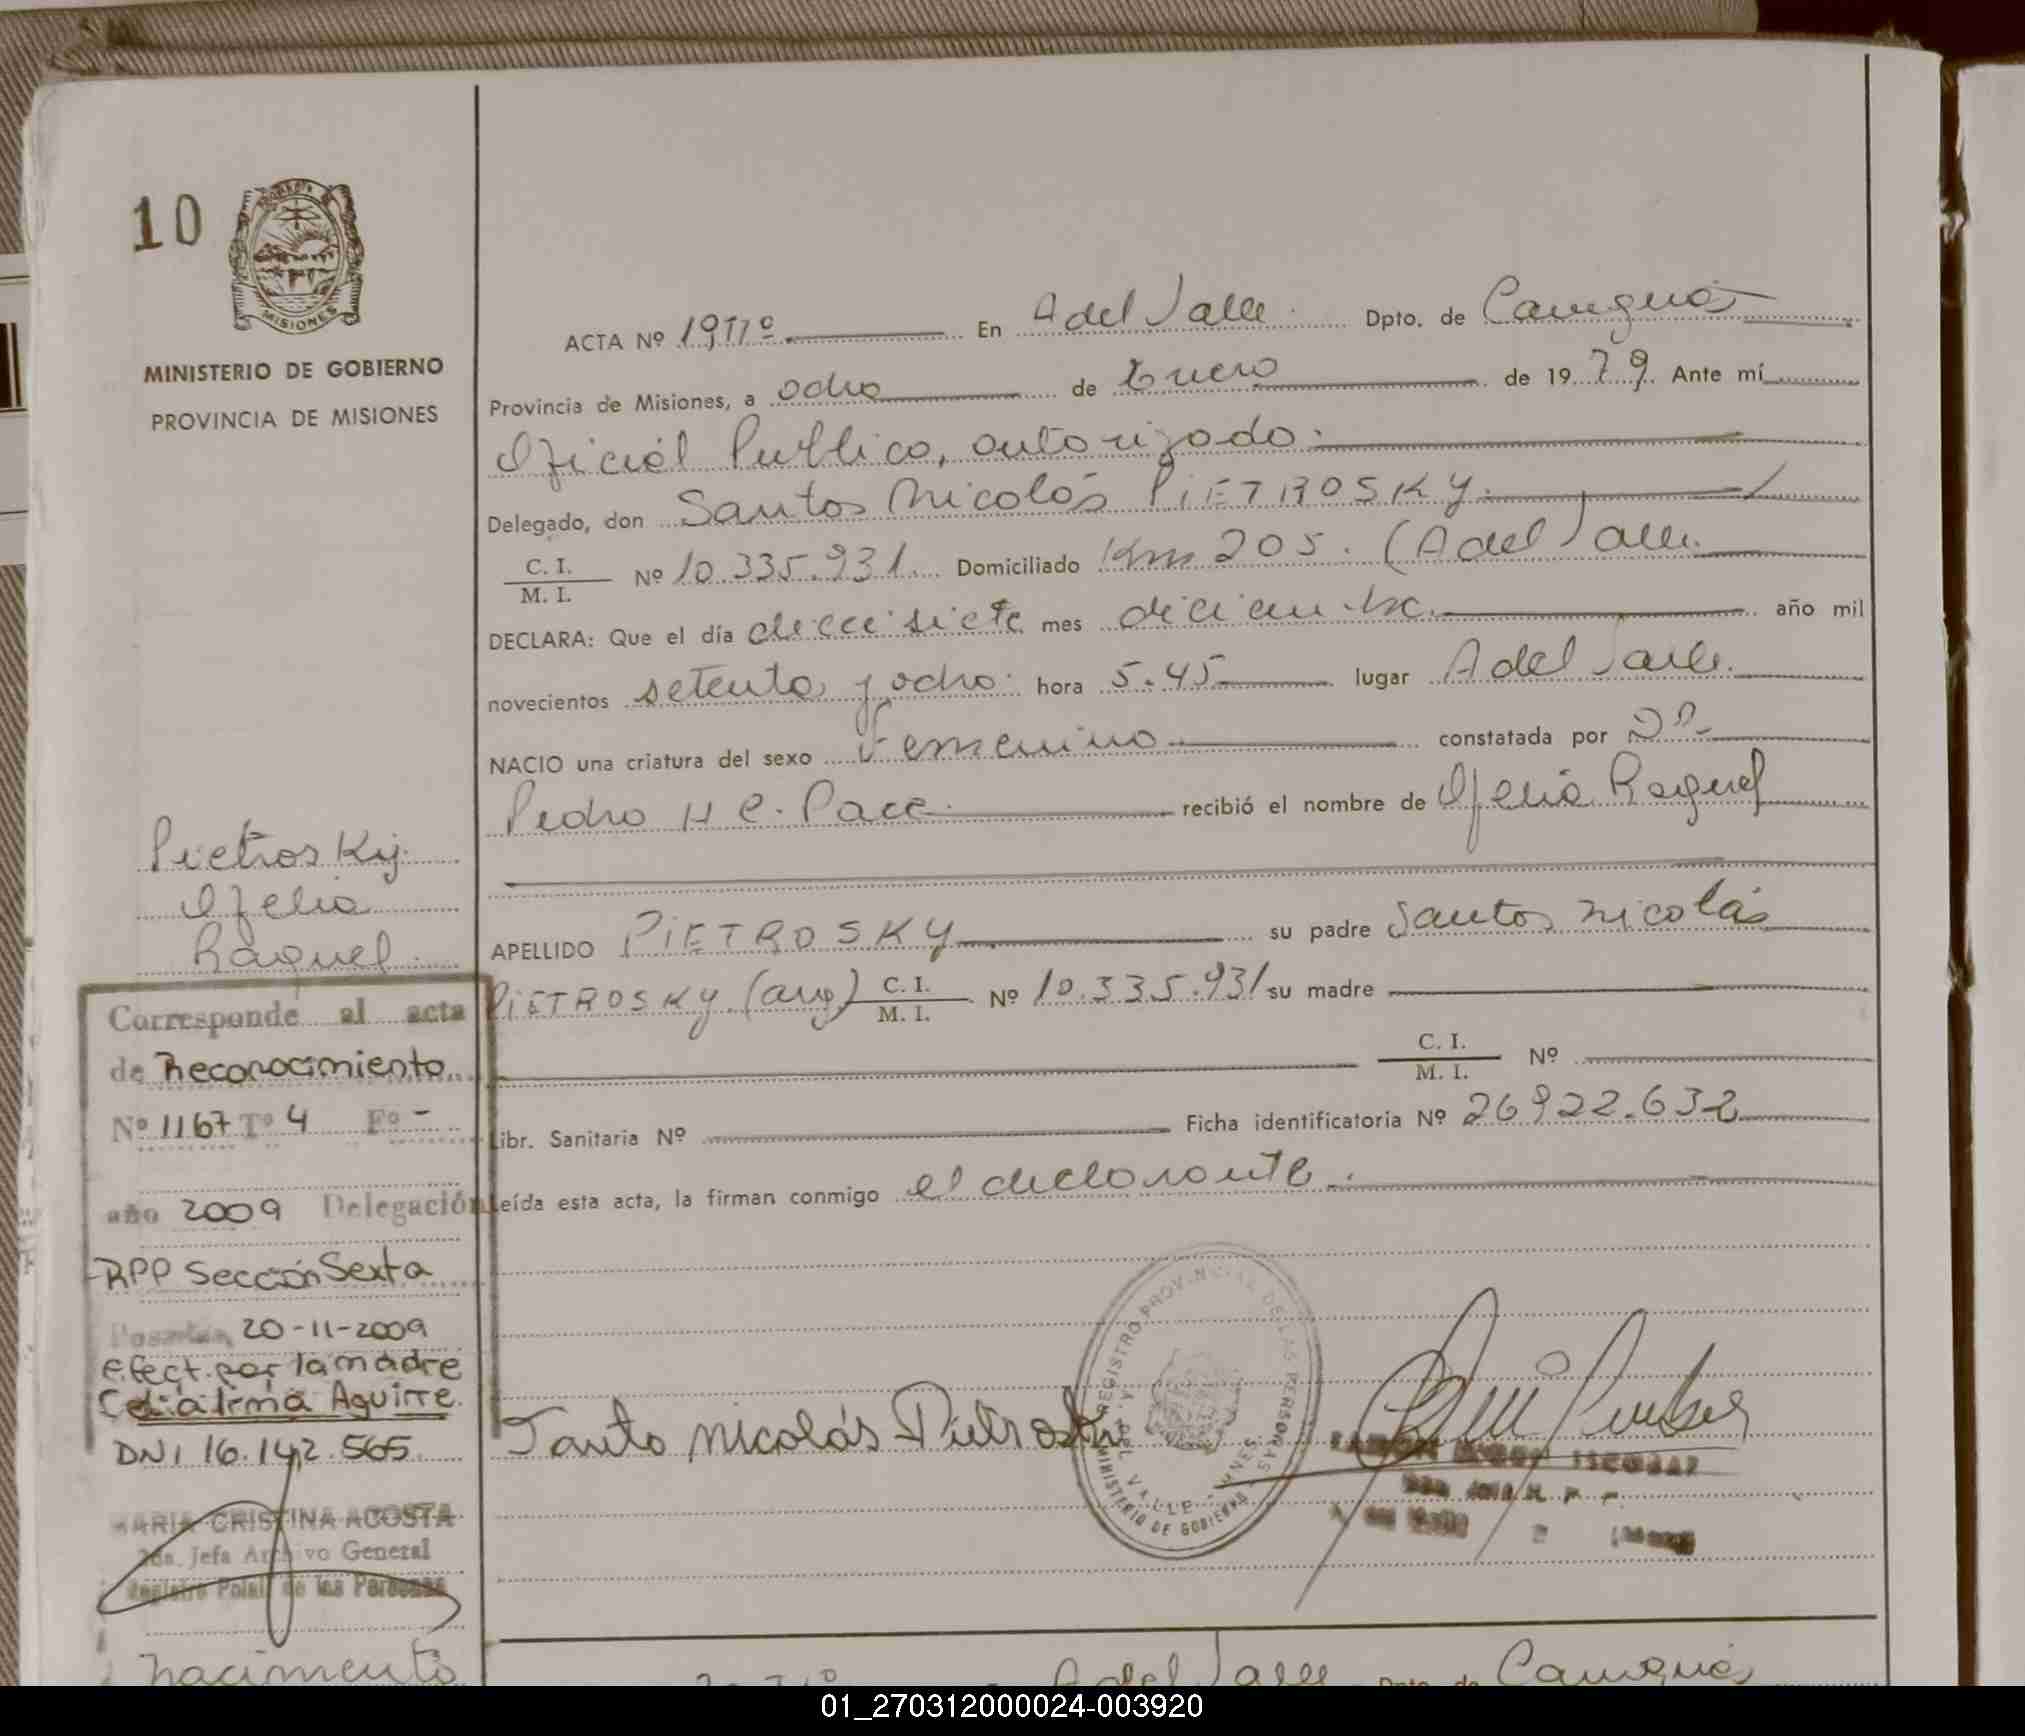 10
MISIONES
MINISTERIO DE GOBIERNO
PROVINCIA DE MISIONES
ACTA Nº 19 Tº En A del Valle. Dpto. de Cainguás
Provincia de Misiones, a ocho de Enero de 1979. Ante mí
Oficiál Publico, autorizado.
Delegado, don Santos Nicolás PIETROSKY.
C. I.
M. I.
Nº 10.335.931. Domiciliado Km 205. (A del Valle.
DECLARA: Que el día diecisiete mes diciembre. año mil
novecientos setenta y ocho. hora 5.45 lugar A del Valle.
NACIO una criatura del sexo Femenino constatada por Dº
Pedro H C. Pace. recibió el nombre de Ofelia Raquel
APELLIDO PIETROSKY su padre Santos Nicolás
PIETROSKY (arg) C. I. Nº 10.335.931 su madre
M. I.
C. I. Nº
M. I.
Libr. Sanitaria Nº Ficha identificatoria Nº 26922.632
Leída esta acta, la firman conmigo el declarante.
REGISTRO PROVINCIAL DE LAS PERSONAS
MINISTERIO DE GOBIERNO
DEL VALLE
Santo Nicolás Pietroski
ESCOBAR
Pietrosky.
Ofelia
Raquel
Corresponde al acta
de Reconocimiento
Nº 1167 Tº 4 Fº -
año 2009 Delegación
RPP Sección Sexta
Posadas, 20-11-2009
efect. por la madre
Celia Irma Aguirre.
DNI 16.142.565
MARIA CRISTINA ACOSTA
Jefa Archivo General
Registro de las Personas
Nacimiento
A del Valle Dpto. de Cainguás
01_270312000024-003920